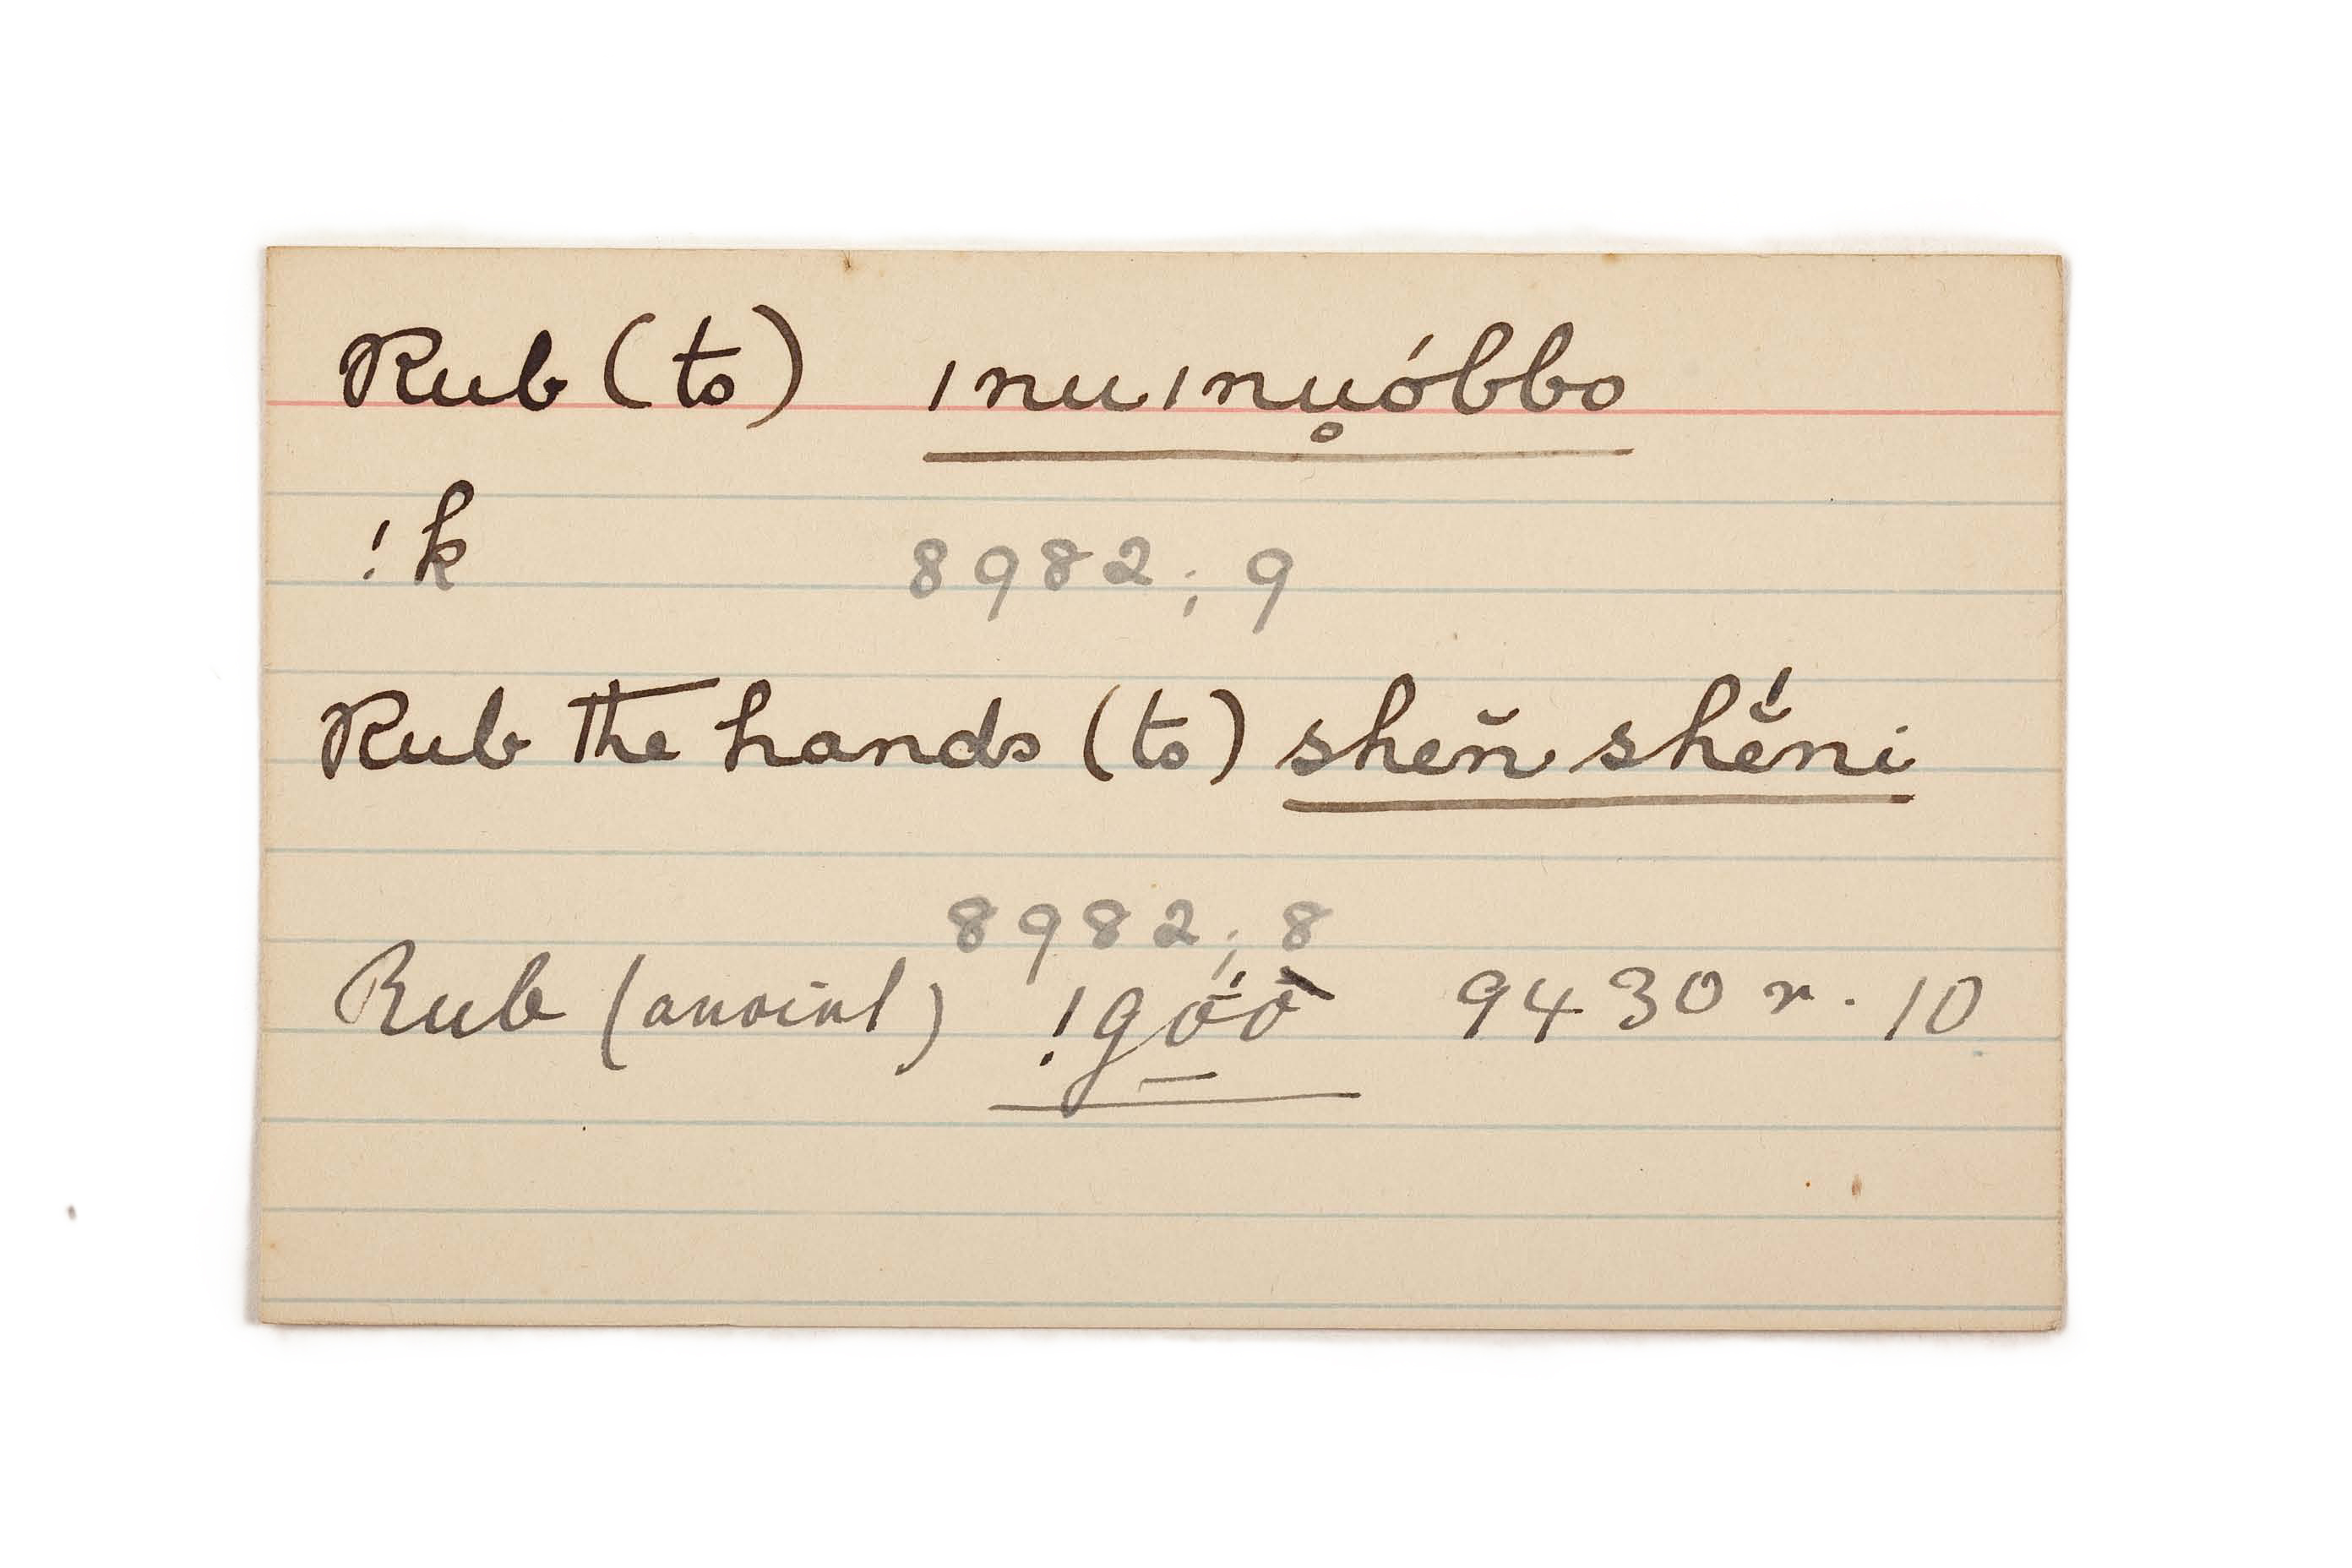 Rub (to) ǀnuǀnu̥óbbo
!k
8982; 9
Rub the hands (to) sheñ shĕ́ni
8982; 8
Rub (anoint) !gṓ̱ṑ 9430 r. 10